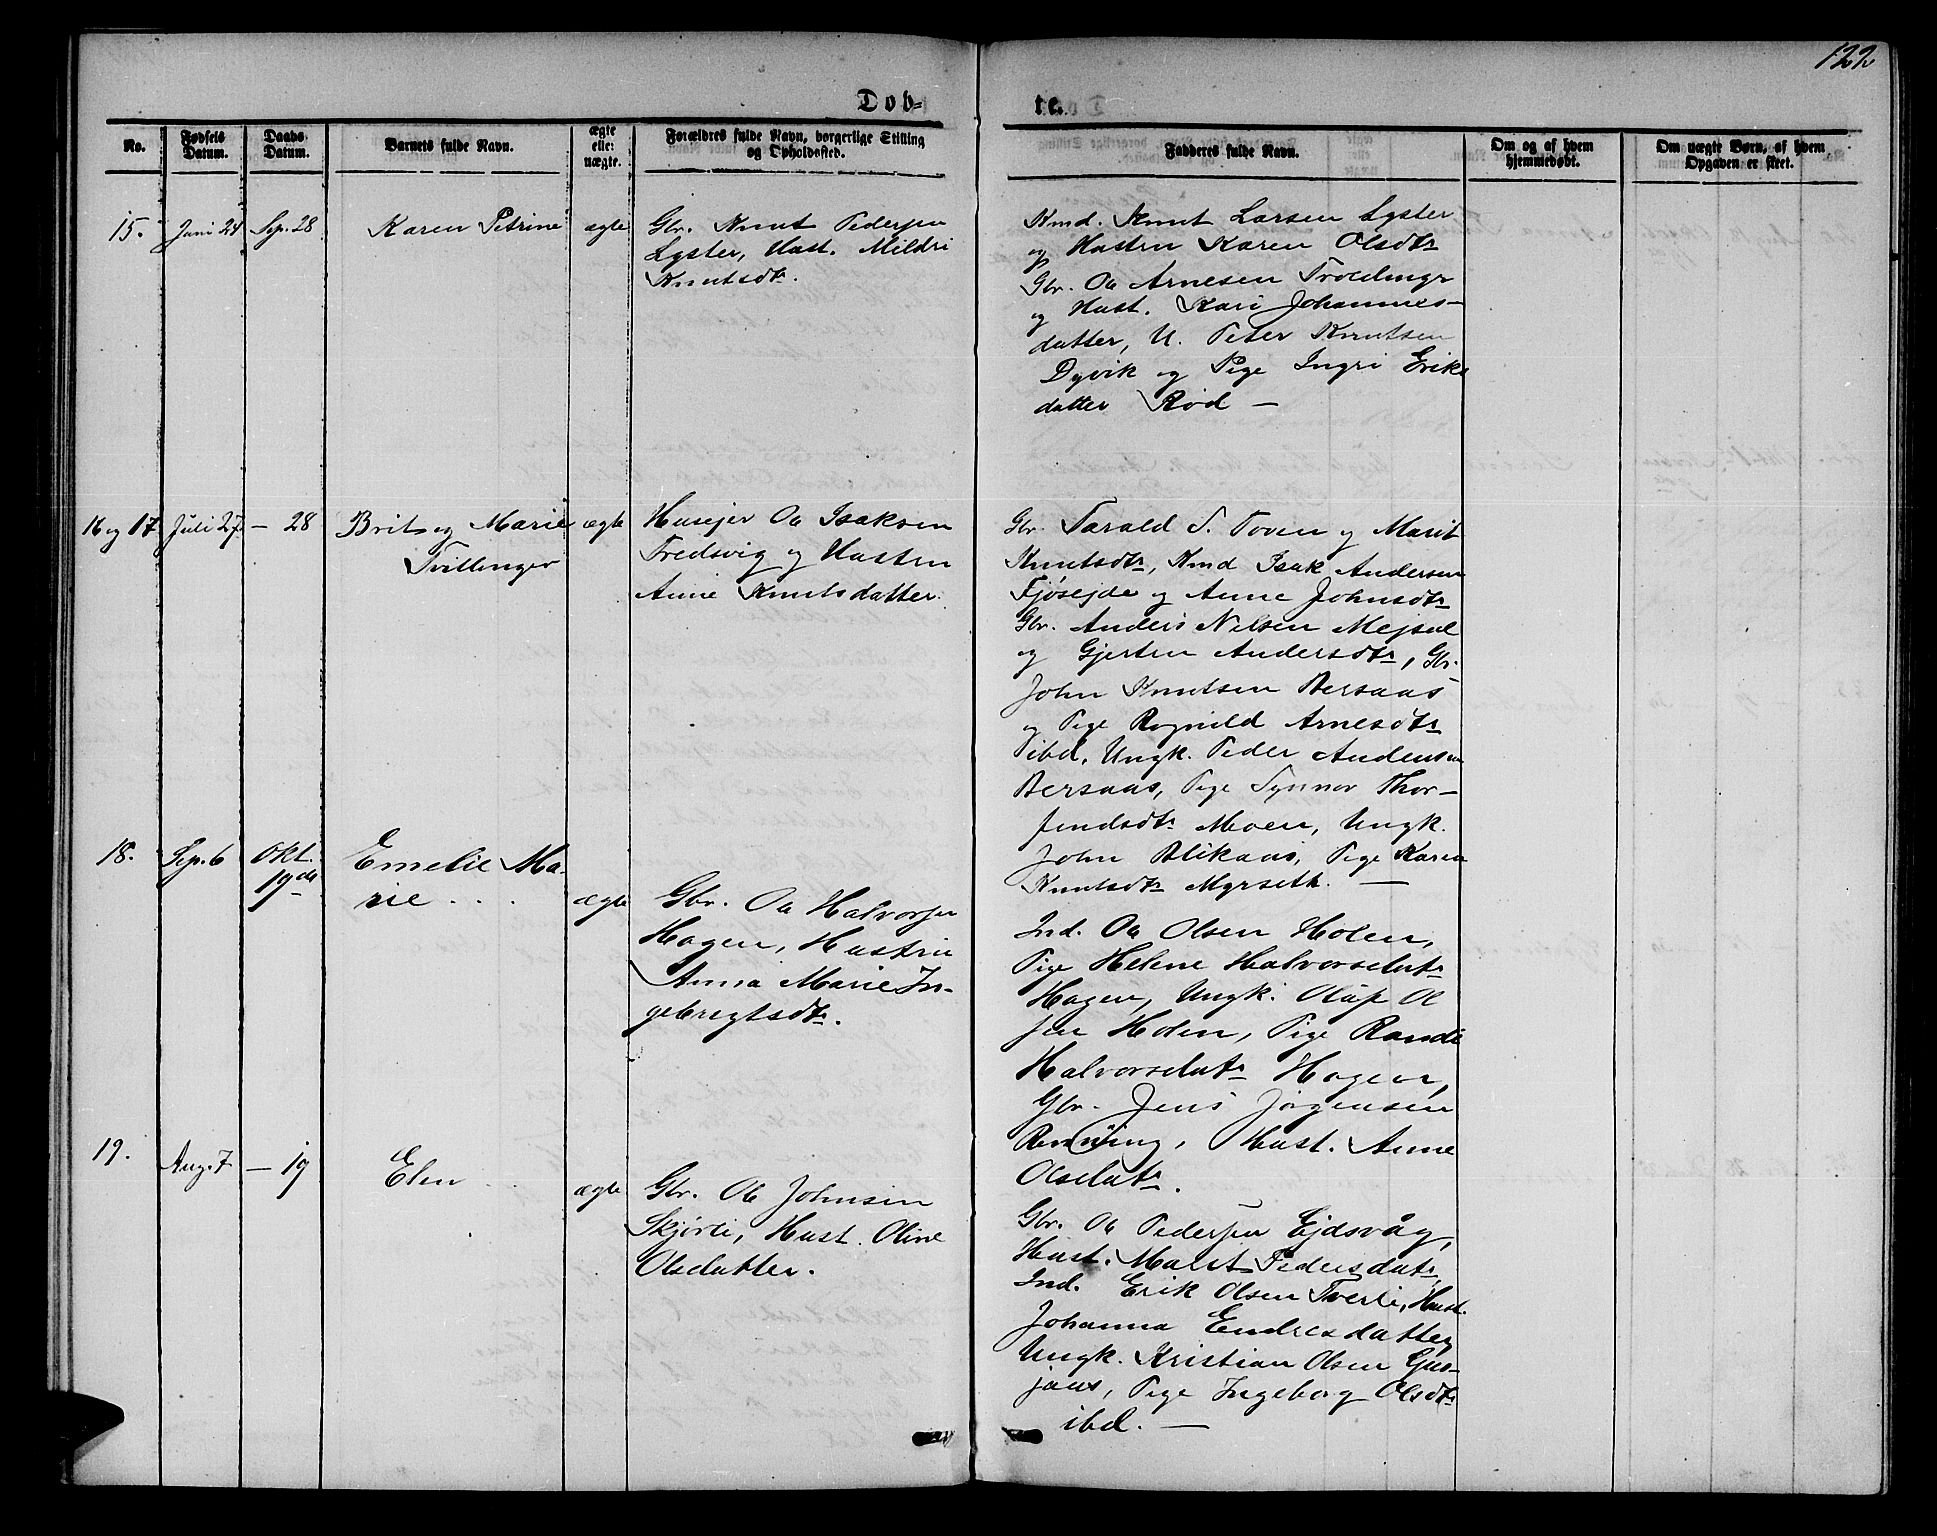 122
Døb=
te.
No.
Fødsels Datum.
Daabs Datum.
Barnets fulde Navn.
ægte elle: uægte.
Forældres fulde Navn, borgerlige Stilling
og Opholdssted.
Fadderes fulde Navn.
Om og af hvem
hjemmedøbt.
Om uægte Børn, af hvem
Opgaven er skeet.
15.
Juni 24
Sep. 28
Karen Petrine
ægte
Gbr. Knut Pedersen
Lyster, Hust. Mildri
Knutsdtr.
Kmd. Knut Larsen Lyster
og Hustru Karen Olsdtr
Gbr. Ole Arnesen
og Hust. Kari Johannes-
datter, U. Peter Knutsen
Dyvik og Pige Ingri Eriks
datter Rød —
16 og 17
Juli 27
— 28
Brit og Marie
Tvillinger
ægte
Husejer Ole Isaksen
Fredsvig og Hustru
Anne Knutsdatter.
Gbr. Tarald T. Toven og Marit
Knutsdtr, Kmd Isak Andersen
Fjøsejde og Anne Johnsdtr
Gbr. Anders Nelsen Mejsal
og Gjertru Andersdtr, Gbr.
John Knutsen Bersaas
og Pige Ragnild Arnesdtr
ibd, Ungk. Peder Andersen
Bersaas, Pige Synnov Thor-
findsdtr Moen, Ungk.
John Blikaas, Pige Karen
Knutsdtr Myrseth. —
18.
Sep. 6
Okt.
19de
Emelie Ma-
rie . . .
ægte
Gbr. Ole Halvorsen
Hagen, Hustru
Anna Marie In-
gebregtsdtr.
Ind. Ole Olsen Holen,
Pige Helene Halvorsdatr
Hagen, Ungk. Oluf Ol
sen Holen, Pige Randi
Halvorsdatr Hagen,
Gbr. Jens Jørgensen
Rønning, Hust. Anne
Olsdatr.
19.
Aug. 7
— 19
Elen . .
ægte
Gbr. Ole Johnsen
Skjørli, Hust. Oline
Olsdatter.
Gbr. Ole Pedersen Ejdsvåg,
Hust. Marit Pedersdatr,
Ind. Erik Olsen Tverli, Hust.
Johanna Endresdatter,
Ungk. Kristian Olsen Gus-
jaas, Pige Ingeborg Olsdtr
ibd. —